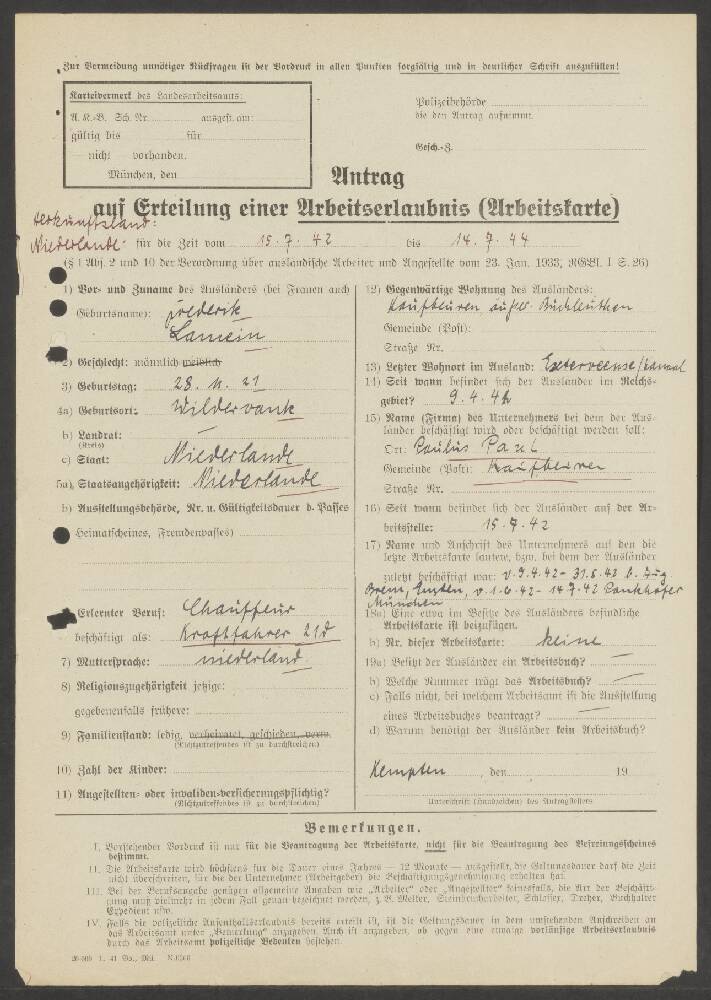 Zur Vermeidung unnötiger Rückfragen ist der Vordruck in allen Punkten sorgfältig und in deutlicher Schrift auszufüllen!
Karteivermerk des Landesarbeitsamts:
A. K.-B. Sch. Nr. ausgest. am:
gültig bis für
nicht vorhanden.
München, den
Polizeibehörde
die den Antrag aufnimmt.
Gesch.-Z.
Antrag
auf Erteilung einer Arbeitserlaubnis (Arbeitskarte)
Herkunftsland:
Niederlande
für die Zeit vom 15. 7. 42 bis 14. 7. 44
(§ 1 Abj. 2 und 10 der Verordnung über ausländische Arbeiter und Angestellte vom 23. Jan. 1933, RGBl. I S. 26)
1) Vor- und Zuname des Ausländers (bei Frauen auch
Geburtsname):
Lamein
2) Geschlecht: männlich weiblich
3) Geburtstag: 28. 11. 21
4a) Geburtsort: Wildervank
b) Landrat:
(Kreis)
c) Staat: Niederlande
5a) Staatsangehörigkeit: Niederlande
b) Ausstellungsbehörde, Nr. u. Gültigkeitsdauer d. Passes
Heimatscheines, Fremdenpasses)
Erlernter Beruf: Chauffeur
beschäftigt als: Kraftfahrer 21d
7) Muttersprache: niederländ.
8) Religionszugehörigkeit jetzige:
gegebenenfalls frühere:
9) Familienstand: ledig, verheiratet, geschieden, verw.
(Nichtzutreffendes ist zu durchstreichen)
10) Zahl der Kinder:
11) Angestellten- oder invaliden-versicherungspflichtig?
(Nichtzutreffendes ist zu durchstreichen)
12) Gegenwärtige Wohnung des Ausländers:
Kaufbeuren
Gemeinde (Post):
Straße Nr.
13) Letzter Wohnort im Ausland:
14) Seit wann befindet sich der Ausländer im Reichs-
gebiet? 9. 4. 42
15) Name (Firma) des Unternehmers bei dem der Aus-
länder beschäftigt wird oder beschäftigt werden soll:
Ort: Paulus Paul
Gemeinde (Post): Kaufbeuren
Straße Nr.
16) Seit wann befindet sich der Ausländer auf der Ar-
beitsstelle: 15. 7. 42
17) Name und Anschrift des Unternehmers auf den die
letzte Arbeitskarte lautete, bzw. bei dem der Ausländer
zuletzt beschäftigt war: v. 9. 4. 42 - 31. 5. 42 b.
v. 1. 6. 42 - 14. 7. 42
München
18a) Eine etwa im Besitze des Ausländers befindliche
Arbeitskarte ist beizufügen.
b) Nr. dieser Arbeitskarte: keine
19a) Besitzt der Ausländer ein Arbeitsbuch?
b) Welche Nummer trägt das Arbeitsbuch?
c) Falls nicht, bei welchem Arbeitsamt ist die Ausstellung
eines Arbeitsbuches beantragt?
d) Warum benötigt der Ausländer kein Arbeitsbuch?
Kempten, den 19
Unterschrift (Handzeichen) des Antragstellers
Bemerkungen.
I. Vorstehender Vordruck ist nur für die Beantragung der Arbeitskarte, nicht für die Beantragung des Befreiungsscheines
bestimmt.
II. Die Arbeitskarte wird höchstens für die Dauer eines Jahres — 12 Monate — ausgestellt, die Geltungsdauer darf die Zeit
nicht überschreiten, für die der Unternehmer (Arbeitgeber) die Beschäftigungsgenehmigung erhalten hat.
III. Bei der Berufsangabe genügen allgemeine Angaben wie „Arbeiter" oder „Angestellter" keinesfalls, die Art der Beschäfti-
gung muß vielmehr in jedem Fall genau bezeichnet werden, z. B. Melker, Steinbrucharbeiter, Schlosser, Dreher, Buchhalter
Expedient usw.
IV. Falls die polizeiliche Aufenthaltserlaubnis bereits erteilt ist, ist die Geltungsdauer in dem umstehenden Anschreiben an
das Arbeitsamt unter „Bemerkung" anzugeben. Auch ist anzugeben, ob gegen eine etwaige vorläufige Arbeitserlaubnis
durch das Arbeitsamt polizeiliche Bedenken bestehen.